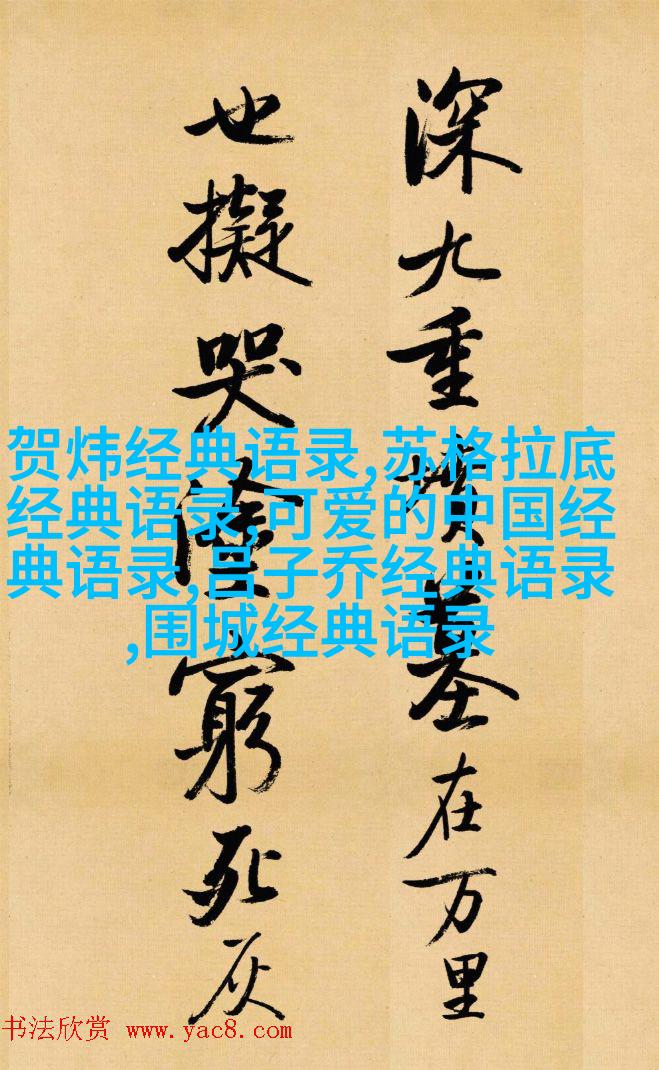 深九重墳墓在万里
也擬哭塗窮死灰
贺炜经典语录,苏格拉底
经典语录,可爱的中国经
典语录,吕子乔经典语录
,围城经典语录
书法欣赏 www.yac8.com